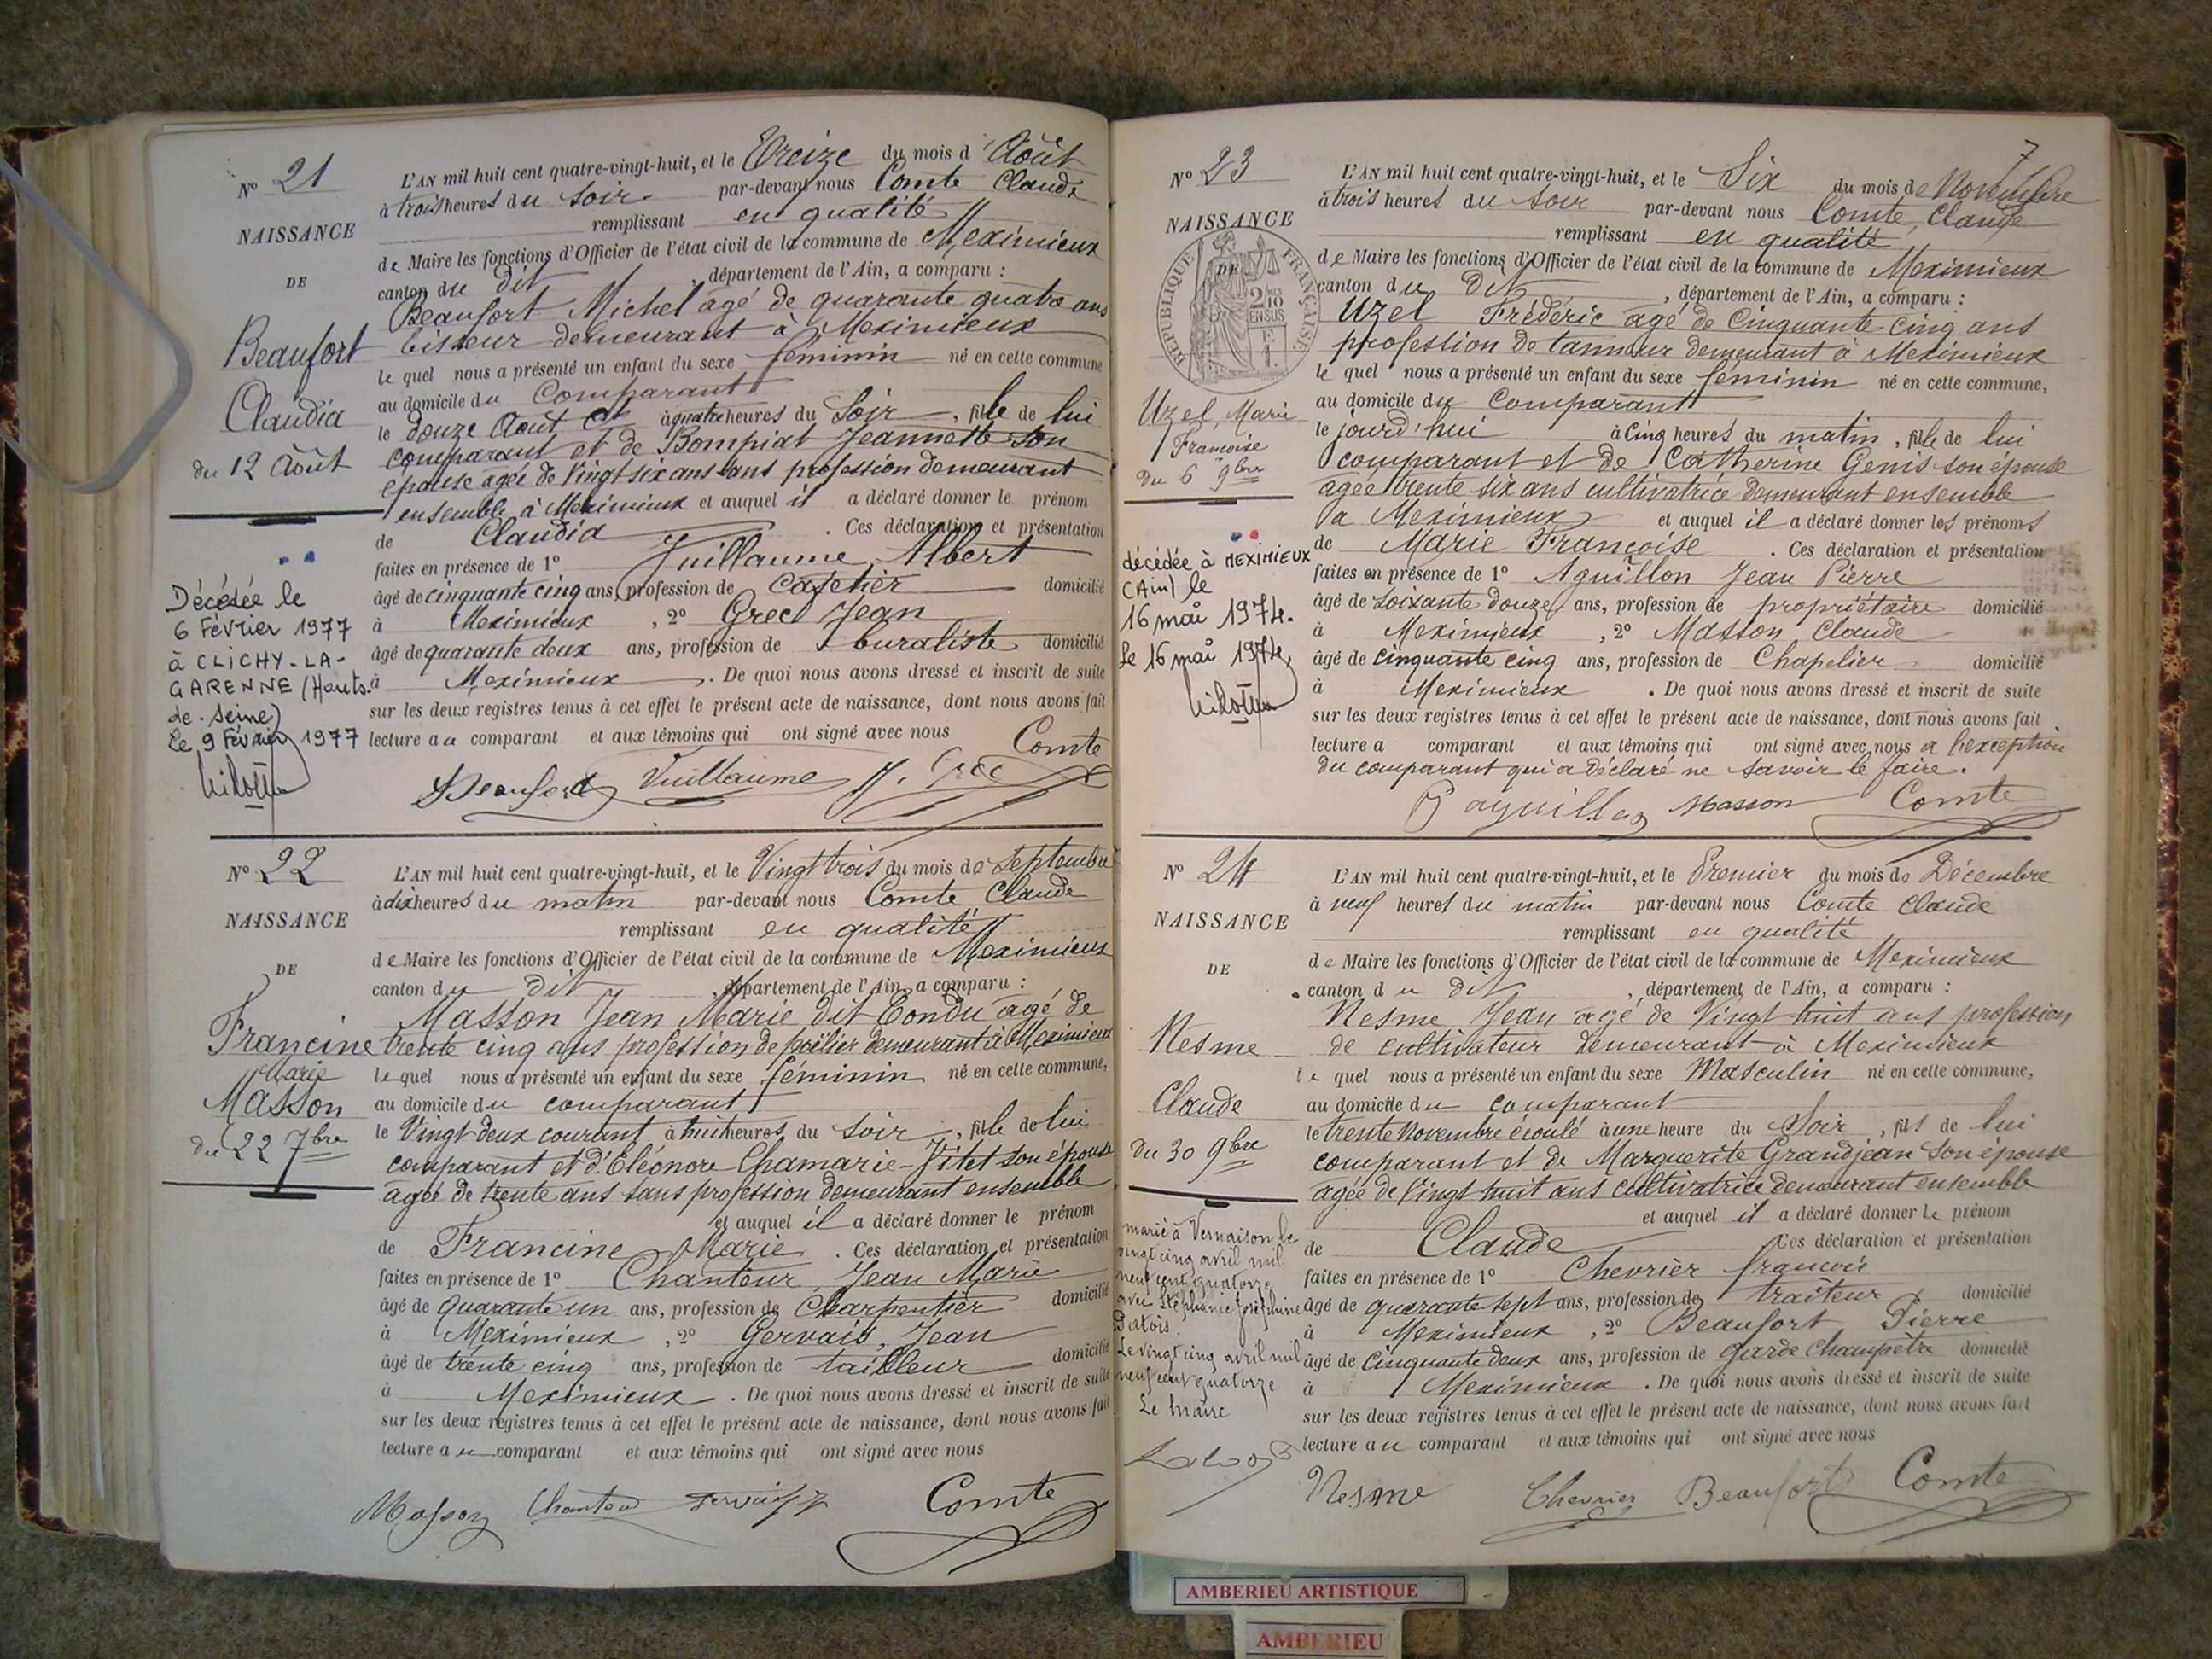 N° 21
NAISSANCE
DE
Beaufort
Claudia
du 12 Août
Décédée le
6 Février 1977
à CLICHY-LA-
GARENNE (Hauts-
de-Seine)
Le 9 Février 1977
L'AN mil huit cent quatre-vingt-huit, et le Treize du mois d'Août
à trois heures du soir par-devant nous Comte Claude
remplissant en qualité
de Maire les fonctions d'Officier de l'état civil de la commune de Meximieux
canton du dit, département de l'Ain, a comparu :
Beaufort Michel agé de quarante quatre ans
demeurant à Meximieux
le quel nous a présenté un enfant du sexe féminin né en cette commune
au domicile du Comparant
le douze Août à quatre heures du Soir, fille de lui
comparant et de Bompiat Jeannette son
épouse agée de Vingt six ans sans profession demeurant
ensemble à Meximieux et auquel il a déclaré donner le prénom
de Claudia. Ces déclaration et présentation
faites en présence de 1° Vuillaume Albert
âgé de cinquante cinq ans, profession de Cafetier domicilié
à Meximieux, 2° Grec Jean
âgé de quarante deux ans, profession de buraliste domicilié
à Meximieux. De quoi nous avons dressé et inscrit de suite
sur les deux registres tenus à cet effet le présent acte de naissance, dont nous avons fait
lecture au comparant et aux témoins qui ont signé avec nous
Beaufort Vuillaume J. Grec Comte
N° 22
NAISSANCE
DE
Francine
Marie
Masson
du 22 7bre
L'AN mil huit cent quatre-vingt-huit, et le Vingt trois du mois de Septembre
à dix heures du matin par-devant nous Comte Claude
remplissant en qualité
de Maire les fonctions d'Officier de l'état civil de la commune de Meximieux
canton du dit, département de l'Ain, a comparu :
Masson Jean Marie dit Tondu agé de
trente cinq ans profession de poëlier demeurant à Meximieux
le quel nous a présenté un enfant du sexe féminin né en cette commune,
au domicile du comparant
le Vingt deux courant à huit heures du Soir, fille de lui
comparant et d'Eléonore Chamarie-Fitet son épouse
agée de trente ans sans profession demeurant ensemble
et auquel il a déclaré donner le prénom
de Francine Marie. Ces déclaration et présentation
faites en présence de 1° Chanteur, Jean Marie
âgé de quarante un ans, profession de Charpentier domicilié
à Meximieux, 2° Gervais, Jean
âgé de trente cinq ans, profession de tailleur domicilié
à Meximieux. De quoi nous avons dressé et inscrit de suite
sur les deux registres tenus à cet effet le présent acte de naissance, dont nous avons fait
lecture au comparant et aux témoins qui ont signé avec nous
Masson Chanteur Gervais J Comte
7
N° 23
NAISSANCE
DE
RÉPUBLIQUE FRANÇAISE
Uzel, Marie
Françoise
du 6 9bre
décédée à MEXIMIEUX
(Ain) le
16 mai 1974.
Le 16 mai 1974,
L'AN mil huit cent quatre-vingt-huit, et le Six du mois de Novembre
à trois heures du soir par-devant nous Comte, Claude
remplissant en qualité
de Maire les fonctions d'Officier de l'état civil de la commune de Meximieux
canton du dit, département de l'Ain, a comparu :
Uzel Frédéric agé de Cinquante cinq ans
profession de tanneur demeurant à Meximieux
le quel nous a présenté un enfant du sexe féminin né en cette commune,
au domicile du Comparant
le jourd'hui à Cinq heures du matin, fille de lui
comparant et de Catherine Genis son épouse
agée trente six ans cultivatrice demeurant ensemble
à Meximieux et auquel il a déclaré donner les prénoms
de Marie Françoise. Ces déclaration et présentation
faites en présence de 1° Aguillon Jean Pierre
âgé de soixante douze ans, profession de propriétaire domicilié
à Meximieux, 2° Masson Claude
âgé de cinquante cinq ans, profession de Chapelier domicilié
à Meximieux. De quoi nous avons dressé et inscrit de suite
sur les deux registres tenus à cet effet le présent acte de naissance, dont nous avons fait
lecture a comparant et aux témoins qui ont signé avec nous à l'exception
du comparant qui a déclaré ne savoir le faire.
Masson Comte
N° 24
NAISSANCE
DE
Nesme
Claude
Du 30 9bre
marié à Vernaison le
vingt cinq avril mil
neuf cent quatorze
avec Stéphanie Joséphine
Datois.
Le vingt cinq avril mil
neuf cent quatorze
Le Maire
L'AN mil huit cent quatre-vingt-huit, et le Premier du mois de Décembre
à neuf heures du matin par-devant nous Comte Claude
remplissant en qualité
de Maire les fonctions d'Officier de l'état civil de la commune de Meximieux
canton du dit, département de l'Ain, a comparu :
Nesme Jean agé de Vingt huit ans profession
de cultivateur demeurant à Meximieux
le quel nous a présenté un enfant du sexe Masculin né en cette commune,
au domicile du comparant
le trente Novembre écoulé à une heure du Soir, fils de lui
comparant et de Marguerite Grandjean son épouse
agée de Vingt huit ans cultivatrice demeurant ensemble
et auquel il a déclaré donner le prénom
de Claude Ces déclaration et présentation
faites en présence de 1° Chevrier françois
âgé de quarante sept ans, profession de traiteur domicilié
à Meximieux, 2° Beaufort Pierre
âgé de Cinquante deux ans, profession de garde Champêtre domicilié
à Meximieux. De quoi nous avons dressé et inscrit de suite
sur les deux registres tenus à cet effet le présent acte de naissance, dont nous avons fait
lecture au comparant et aux témoins qui ont signé avec nous
Nesme Chevrier Beaufort Comte
AMBERIEU ARTISTIQUE
AMBERIEU